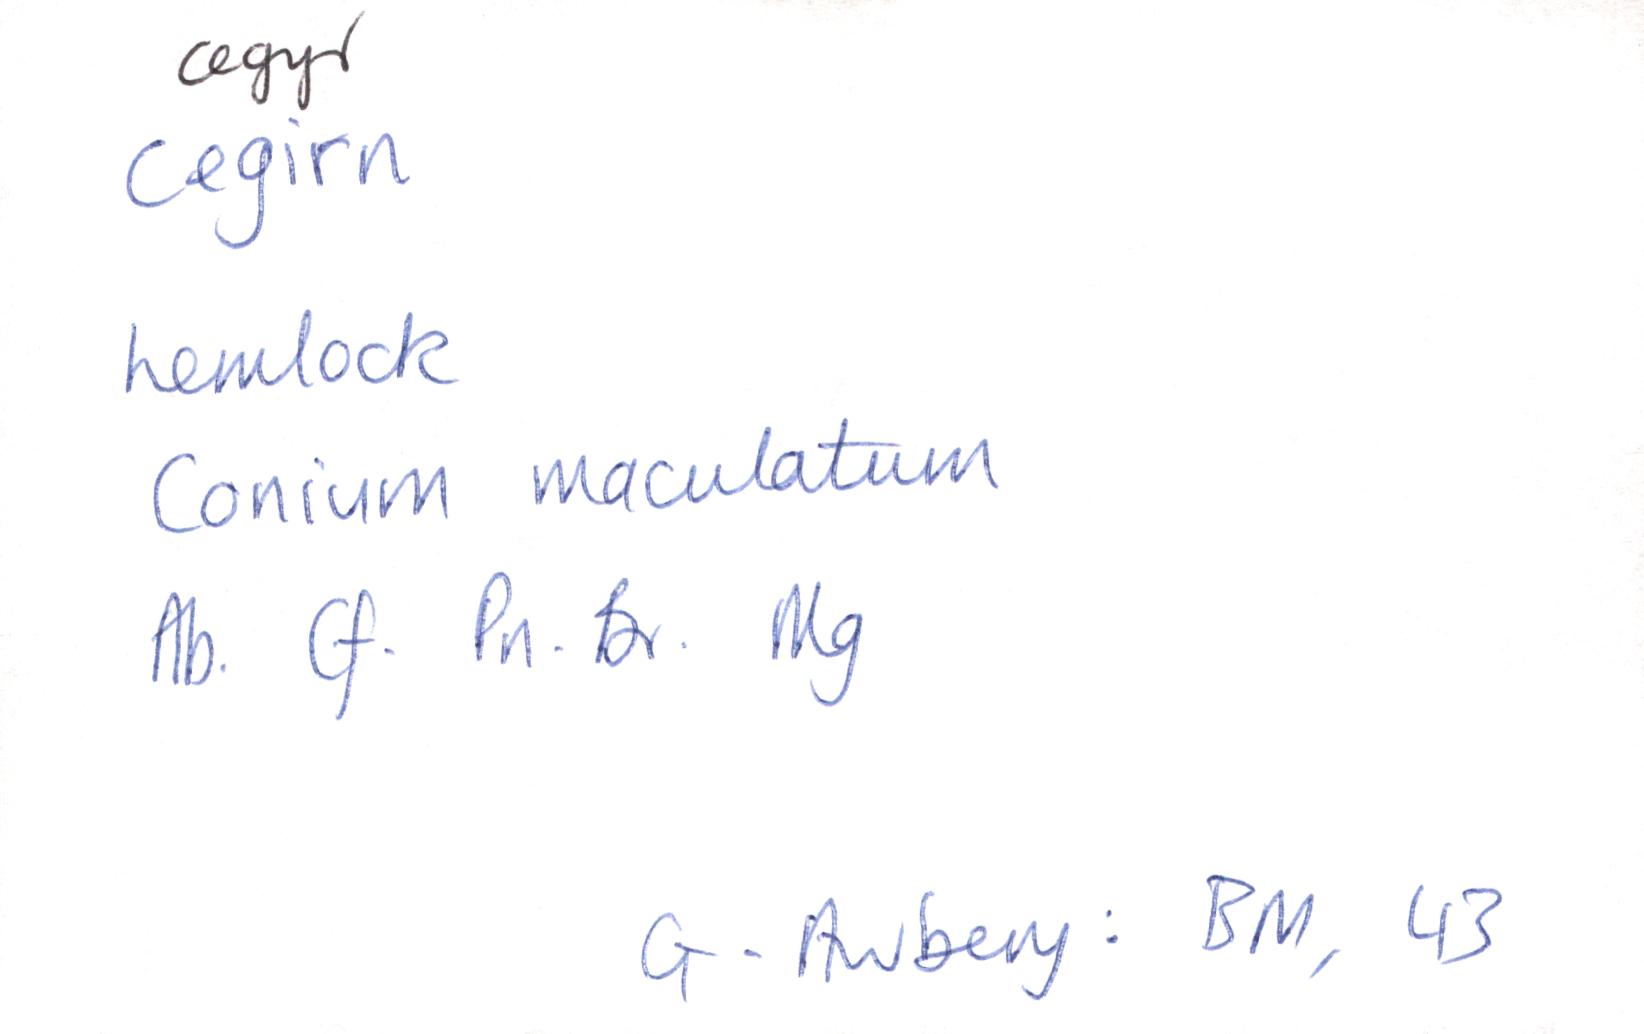 cegyr
Cegirn
hemlock
Conium maculatum
Ab. Cf. Pn. Br. Mg
G. Awbery: BM, 43